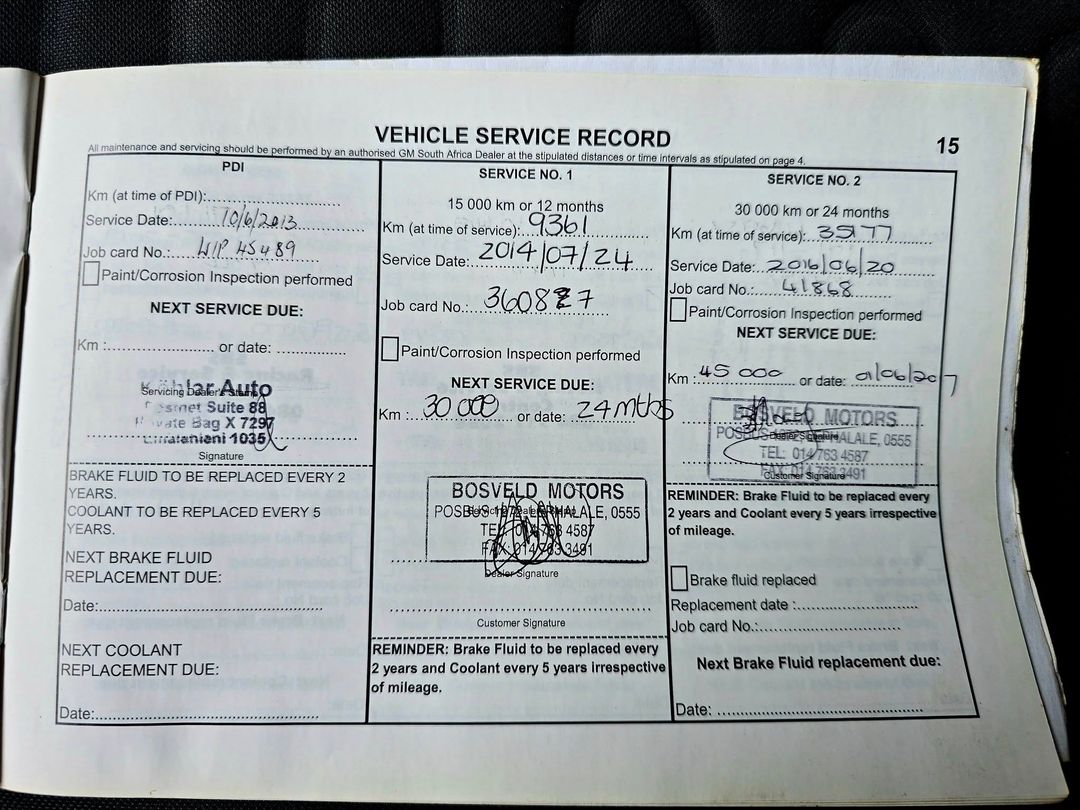 VEHICLE SERVICE RECORD
15
All maintenance and servicing should be performed by an authorised GM South Africa Dealer at the stipulated distances or time intervals as stipulated on page 4.
PDI
Km (at time of PDI):
Service Date: 10/6/2013
Job card No.: WIP 45489
Paint/Corrosion Inspection performed
NEXT SERVICE DUE:
Km : or date:
Auto
Servicing Dealer's Stamp
Suite 88
Bag X 7297
1035
Signature
BRAKE FLUID TO BE REPLACED EVERY 2
YEARS.
COOLANT TO BE REPLACED EVERY 5
YEARS.
NEXT BRAKE FLUID
REPLACEMENT DUE:
Date:
NEXT COOLANT
REPLACEMENT DUE:
Date:
SERVICE NO. 1
15 000 km or 12 months
Km (at time of service): 9361
Service Date: 2014/07/24
Job card No.: 360877
Paint/Corrosion Inspection performed
NEXT SERVICE DUE:
Km : 30 000 or date: 24 mths
BOSVELD MOTORS
POSBUS PHALALE, 0555
TEL: 014 763 4587
FAX: 014 763 3491
Dealer Signature
Customer Signature
REMINDER: Brake Fluid to be replaced every
2 years and Coolant every 5 years irrespective
of mileage.
SERVICE NO. 2
30 000 km or 24 months
Km (at time of service): 35177
Service Date: 2016/06/20
Job card No.: 41868
Paint/Corrosion Inspection performed
NEXT SERVICE DUE:
Km : 45 000 or date: 01/06/2017
BOSVELD MOTORS
POSBUS PHALALE, 0555
Dealer Signature
TEL: 014 763 4587
FAX: 014 763 3491
Customer Signature
REMINDER: Brake Fluid to be replaced every
2 years and Coolant every 5 years irrespective
of mileage.
Brake fluid replaced
Replacement date :
Job card No.:
Next Brake Fluid replacement due:
Date: